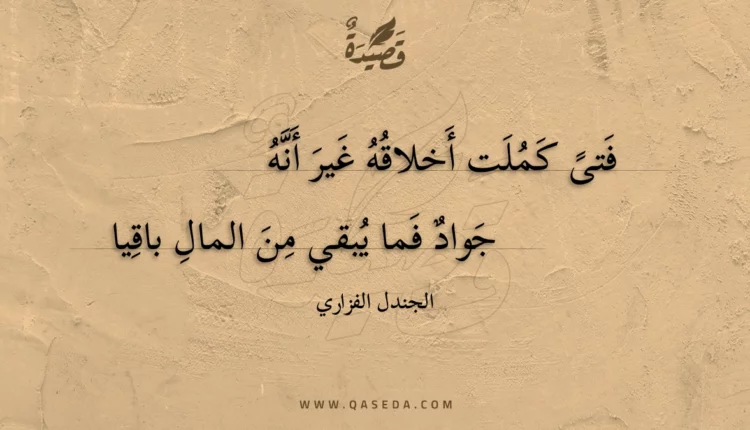 قَصِيدَةٌ
فَتىً كَمُلَت أَخلاقُهُ غَيرَ أَنَّهُ
جَوادٌ فَما يُبقي مِنَ المالِ باقِيا
الجندل الفزاري
WWW.QASEDA.COM